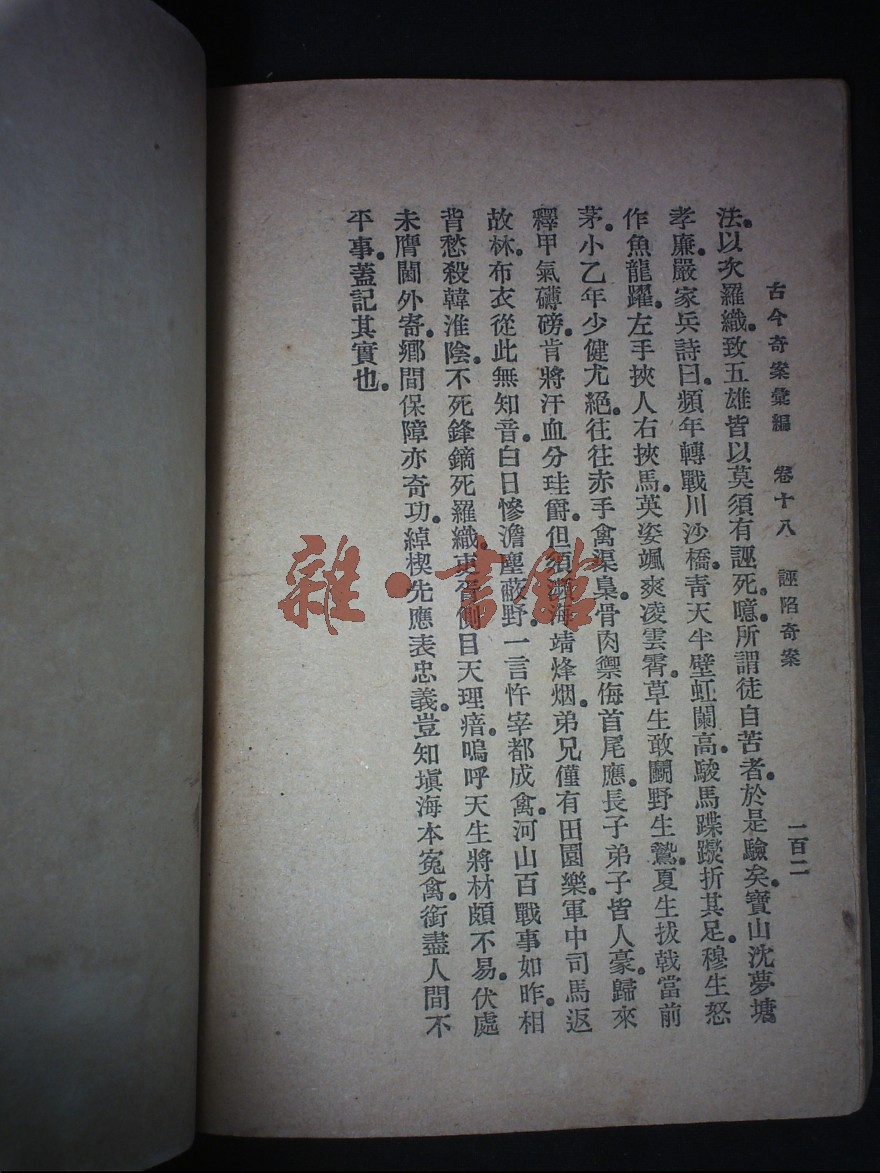 古今奇案彙編　卷十八　誣陷奇案　一百二
法。以次羅織。致五雄皆以莫須有誣死。噫。所謂徒自苦者。於是驗矣。寶山沈夢塘
孝廉。嚴家兵詩曰。頻年轉戰川沙橋。靑天半壁虹闌高。駿馬蹀躞折其足。穆生怒
作魚龍躍。左手挾人右挾馬。英姿颯爽凌雲霄。草生敢鬭野生鷙。夏生拔戟當前
茅。小乙年少健尤絕。往往赤手禽渠梟。骨肉禦侮首尾應。長子弟子皆人豪。歸來
釋甲氣礴磅。肯將汗血分珪爵。但須瀕海靖烽烟。弟兄僅有田園樂。軍中司馬返
故林。布衣從此無知音。白日慘澹塵蔽野。一言忤宰都成禽。河山百戰事如昨。相
背愁殺韓淮陰。不死鋒鏑死羅織。吏胥側目天理瘖。嗚呼天生將材頗不易。伏處
未膺閫外寄。鄉間保障亦奇功。綽楔先應表忠義。豈知塡海本寃禽。銜盡人間不
平事。蓋記其實也。
雜·書館